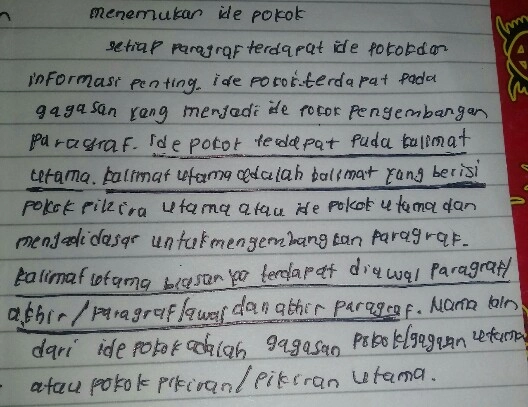 menemukan ide pokok
setiap paragraf terdapat ide pokok dan
informasi penting. ide pokok terdapat pada
gagasan yang menjadi ide pokok pengembangan
paragraf. ide pokok terdapat pada kalimat
utama. kalimat utama adalah kalimat yang berisi
pokok pikira utama atau ide pokok utama dan
menjadi dasar untuk mengembangkan paragraf.
kalimat utama biasanya terdapat diawal paragraf/
akhir/paragraf/awal dan akhir paragraf. Nama lain
dari ide pokok adalah gagasan pokok/gagasan utama
atau pokok pikiran/pikiran utama.